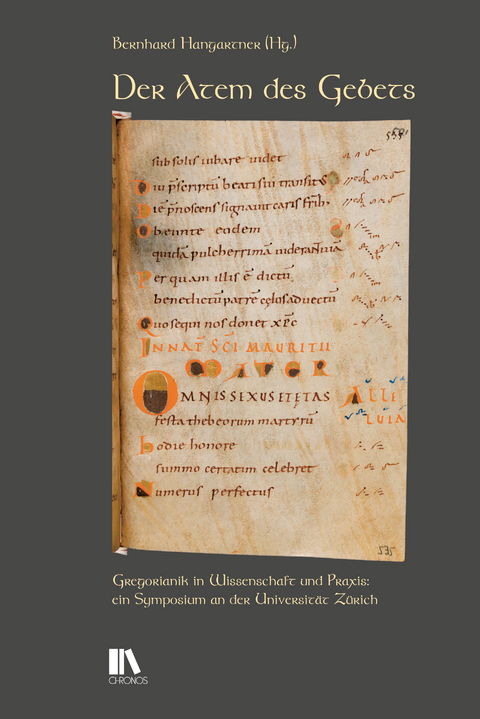 Bernhard Hangartner (Hg.)
Der Atem des Gebets
subsolis iubare videt
beati sui transitus
signavit caris
obeunte eodem
pulcherrimā
Per quam illis ē dictū
benedictum patrē
Quo sequi nos donet xp̄c
IN NAT SC̄I MAURITII
OMNIS SEXUS ET ĘTAS
ALLE
LUIA
festa thebeorum martyrū
hodie honore
summo certatim celebret
Numerus perfectus
535
Gregorianik in Wissenschaft und Praxis:
ein Symposium an der Universität Zürich
CHRONOS